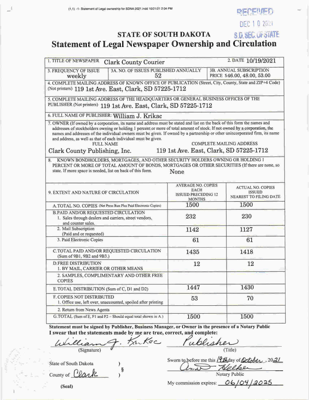 RECEIVED
DEC 1 0 2021
S.D. SEC. OF STATE
STATE OF SOUTH DAKOTA
Statement of Legal Newspaper Ownership and Circulation
1. TITLE OF NEWSPAPER Clark County Courier
2. DATE 10/19/2021
3. FREQUENCY OF ISSUE weekly
3A. NO. OF ISSUES PUBLISHED ANNUALLY 52
3B. ANNUAL SUBSCRIPTION PRICE $46.00, 48.00, 53.00
4. COMPLETE MAILING ADDRESS OF KNOWN OFFICE OF PUBLICATION (Street, City, County, State and ZIP+4 Code)
(Not printers) 119 1st Ave. East, Clark, SD 57225-1712
5. COMPLETE MAILING ADDRESS OF THE HEADQUARTERS OR GENERAL BUSINESS OFFICES OF THE
PUBLISHER (Not printers) 119 1st Ave. East, Clark, SD 57225-1712
6. FULL NAME OF PUBLISHER: William J. Krikac
7. OWNER (If owned by a corporation, its name and address must be stated and list on the back of this form the names and
addresses of stockholders owning or holding 1 percent or more of total amount of stock. If not owned by a corporation, the
names and addresses of the individual owners must be given. If owned by a partnership or other unincorporated firm, its name
and address, as well as that of each individual must be given).
FULL NAME COMPLETE MAILING ADDRESS
Clark County Publishing, Inc. 119 1st Ave. East, Clark, SD 57225-1712
8. KNOWN BONDHOLDERS, MORTGAGES, AND OTHER SECURITY HOLDERS OWNING OR HOLDING 1
PERCENT OR MORE OF TOTAL AMOUNT OF BONDS, MORTGAGES OR OTHER SECURITIES (If there are none, so
state. If more space is needed, list on back of this form. None
9. EXTENT AND NATURE OF CIRCULATION
AVERAGE NO. COPIES EACH ISSUED PRECEDING 12 MONTHS
ACTUAL NO. COPIES ISSUED NEAREST TO FILING DATE
A. TOTAL NO. COPIES (Net Press Run Plus Paid Electronic Copies) 1500 1500
B. PAID AND/OR REQUESTED CIRCULATION
1. Sales through dealers and carriers, street vendors, and counter sales. 232 230
2. Mail Subscription (Paid and or requested) 1142 1127
3. Paid Electronic Copies 61 61
C. TOTAL PAID AND/OR REQUESTED CIRCULATION (Sum of 9B1, 9B2 and 9B3.) 1435 1418
D. FREE DISTRIBUTION
1. BY MAIL, CARRIER OR OTHER MEANS 12 12
2. SAMPLES, COMPLIMENTARY AND OTHER FREE COPIES
E. TOTAL DISTRIBUTION (Sum of C, D1 and D2) 1447 1430
F. COPIES NOT DISTRIBUTED
1. Office use, left over, unaccounted, spoiled after printing 53 70
2. Return from News Agents
G. TOTAL (Sum of E, F1 and F2 - Should equal total shown in A.) 1500 1500
Statement must be signed by Publisher, Business Manager, or Owner in the presence of a Notary Public
I swear that the statements made by me are true, correct, and complete:
William J. Krikac Publisher
(Signature) (Title)
State of South Dakota )
Sworn to before me this 19 day of October, 2021
County of Clark )
Notary Public
(Seal)
My commission expires: 06/04/2025